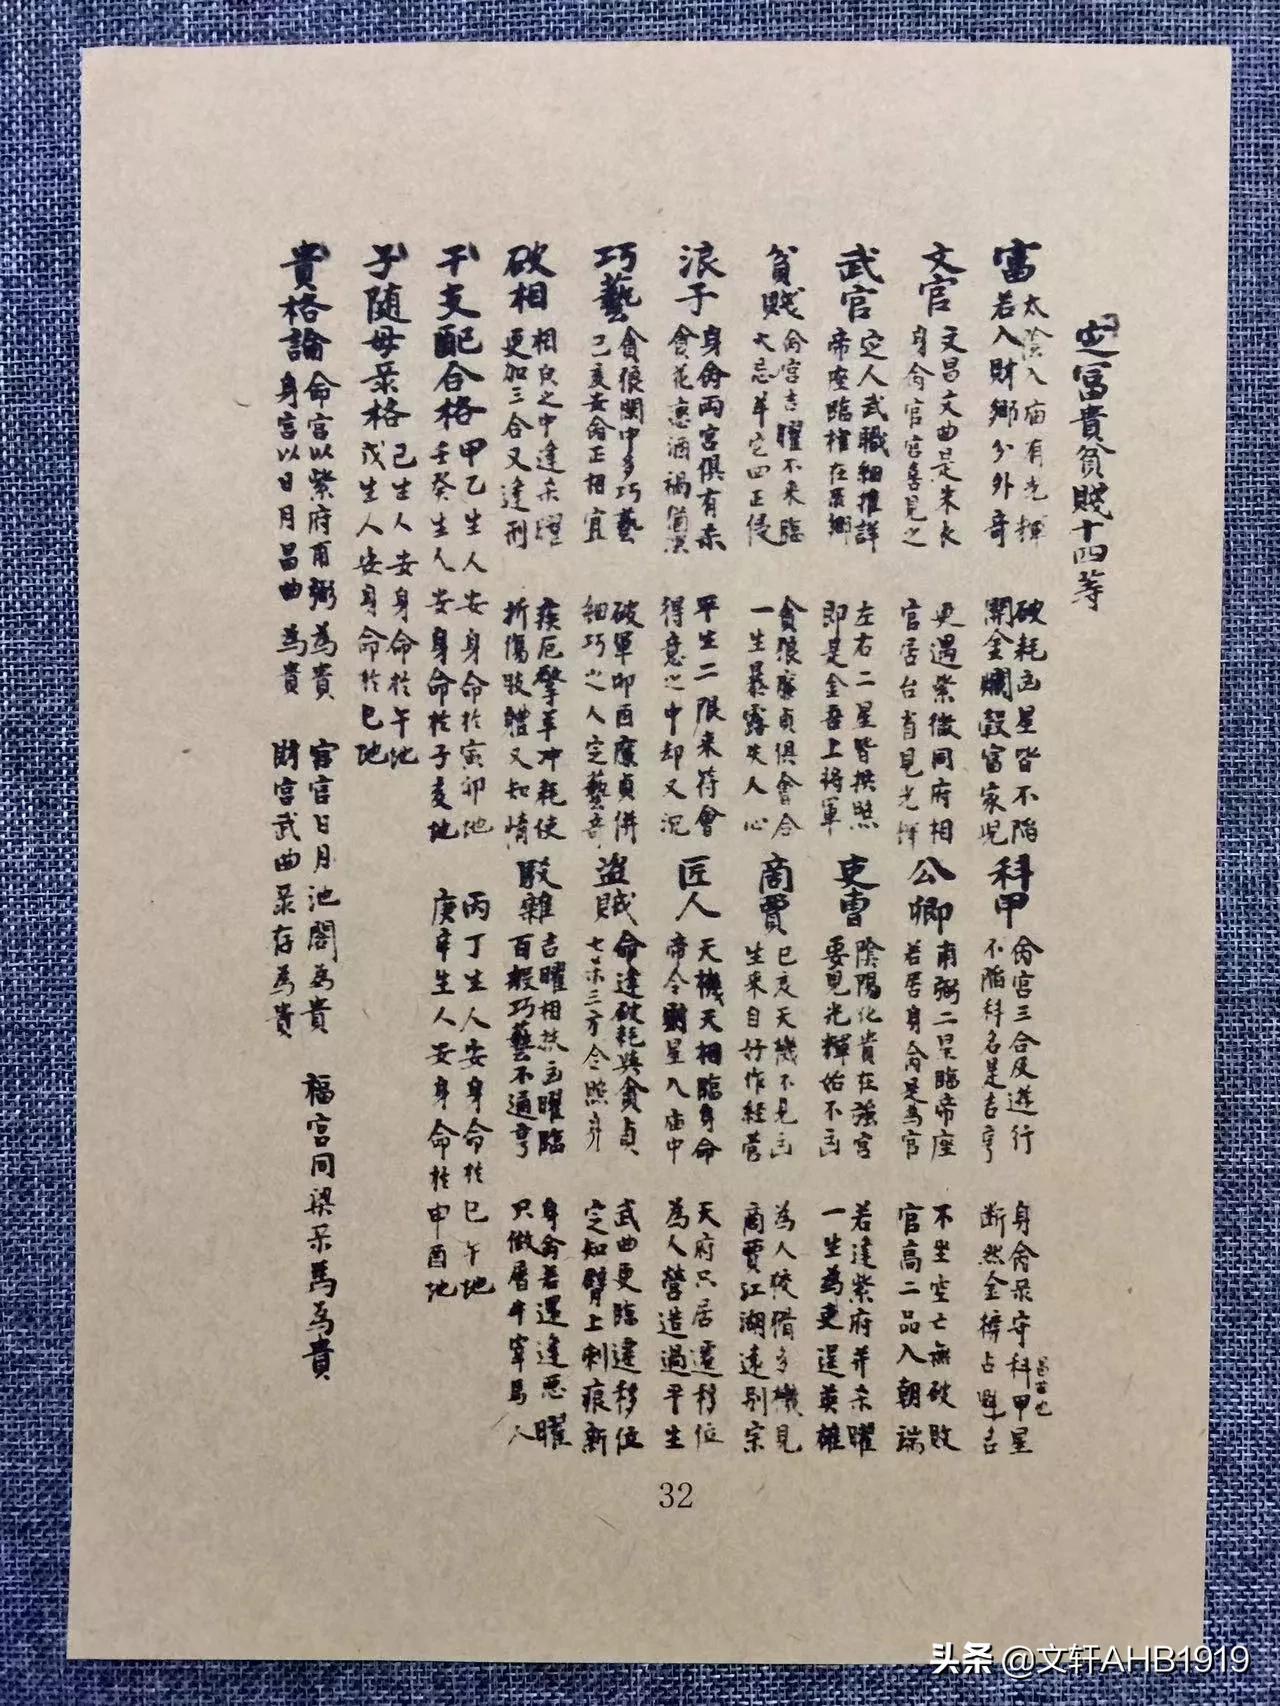 定富貴貧賤十四等
富
太陰入廟有光揮
若入財鄉分外奇
破耗凶星皆不陷
開金爛穀富家兒
科甲
命宮三合及遊行
不陷科名是吉亨
身命彔守科甲星
昌吉也
断然金榜占魁吉
文官
文昌文曲是朱衣
身命官宮喜見之
更遇紫微同府相
官居台省見光輝
公卿
甫弼二星臨帝座
若居身命是為官
不坐空亡無破敗
官高二品入朝端
武官
定人武職細推詳
帝座臨權在旺鄉
左右二星皆拱照
即是金吾上将軍
吏曹
陰陽化貴在強宮
要見光輝始不凶
若逢紫府并杀曜
一生為吏逞英雄
貧賤
命宮吉曜不来臨
大忌羊它四正侵
貪狼廉貞俱會合
一生暴露失人心
商賈
巳亥天機不見凶
生来自好作経营
為人狡猾多機見
商賈江湖遠别宗
浪子
身命两宮俱有杀
貪花戀酒禍猶深
平生二限来符會
得意之中却又沉
匠人
天機天相臨身命
帝令財星入庙中
天府只居遷移位
為人營造過平生
巧藝
貪狼閑中多巧藝
己亥安命正相宜
破軍卯酉廉貞併
細巧之人定藝奇
盗贼
命逢破耗與貪貞
七杀三方合照身
武曲更臨遷移位
定知臂上刺痕新
破相
相貌之中逢杀曜
更加三合又逢刑
疾厄擎羊冲耗使
折傷肢體又知情
駁雜
吉曜相扶凶曜臨
百般巧藝不通亨
身命若還逢悪曜
只做屠牛宰馬人
干支配合格
甲乙生人安身命於寅卯地
丙丁生人安身命於巳午地
壬癸生人安身命於子亥地
庚辛生人安身命於申酉地
子随母彔格
己生人安身命於午地
戊生人安身命於巳地
貴格論
命宮以紫府甫弼為貴
官宮日月池閣為貴
福宮同梁彔馬為貴
身宮以日月昌曲為貴
財宮武曲彔存為貴
32
头条 @文轩AHB1919